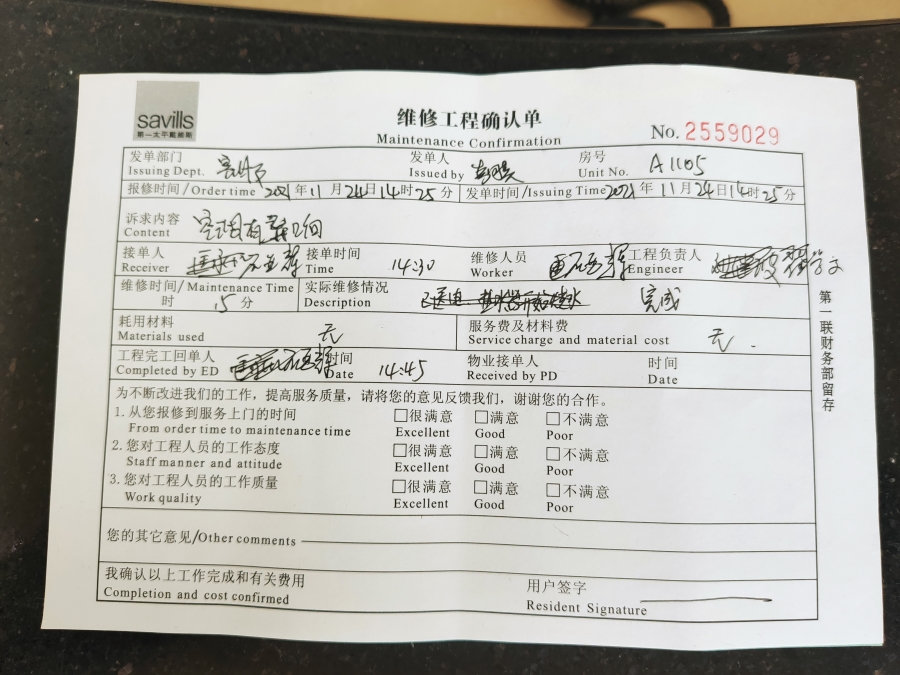 savills
第一太平戴维斯
维修工程确认单
Maintenance Confirmation
No. 2559029
发单部门
Issuing Dept.
发单人
Issued by
房号
Unit No. A1105
报修时间/Order time 2021年11月24日14时25分 发单时间/Issuing Time 2021年11月24日14时25分
诉求内容
Content
接单人
Receiver
接单时间
Time 14:30
维修人员
Worker
工程负责人
Engineer
维修时间/Maintenance Time
时 15分
实际维修情况
Description 完成
耗用材料
Materials used 无
服务费及材料费
Service charge and material cost 无.
工程完工回单人
Completed by ED
时间
Date 14:45
物业接单人
Received by PD
时间
Date
为不断改进我们的工作，提高服务质量，请将您的意见反馈我们，谢谢您的合作。
1.从您报修到服务上门的时间 □很满意 □满意 □不满意
From order time to maintenance time Excellent Good Poor
2.您对工程人员的工作态度 □很满意 □满意 □不满意
Staff manner and attitude Excellent Good Poor
3.您对工程人员的工作质量 □很满意 □满意 □不满意
Work quality Excellent Good Poor
您的其它意见/Other comments
我确认以上工作完成和有关费用
Completion and cost confirmed
用户签字
Resident Signature
第一联财务部留存